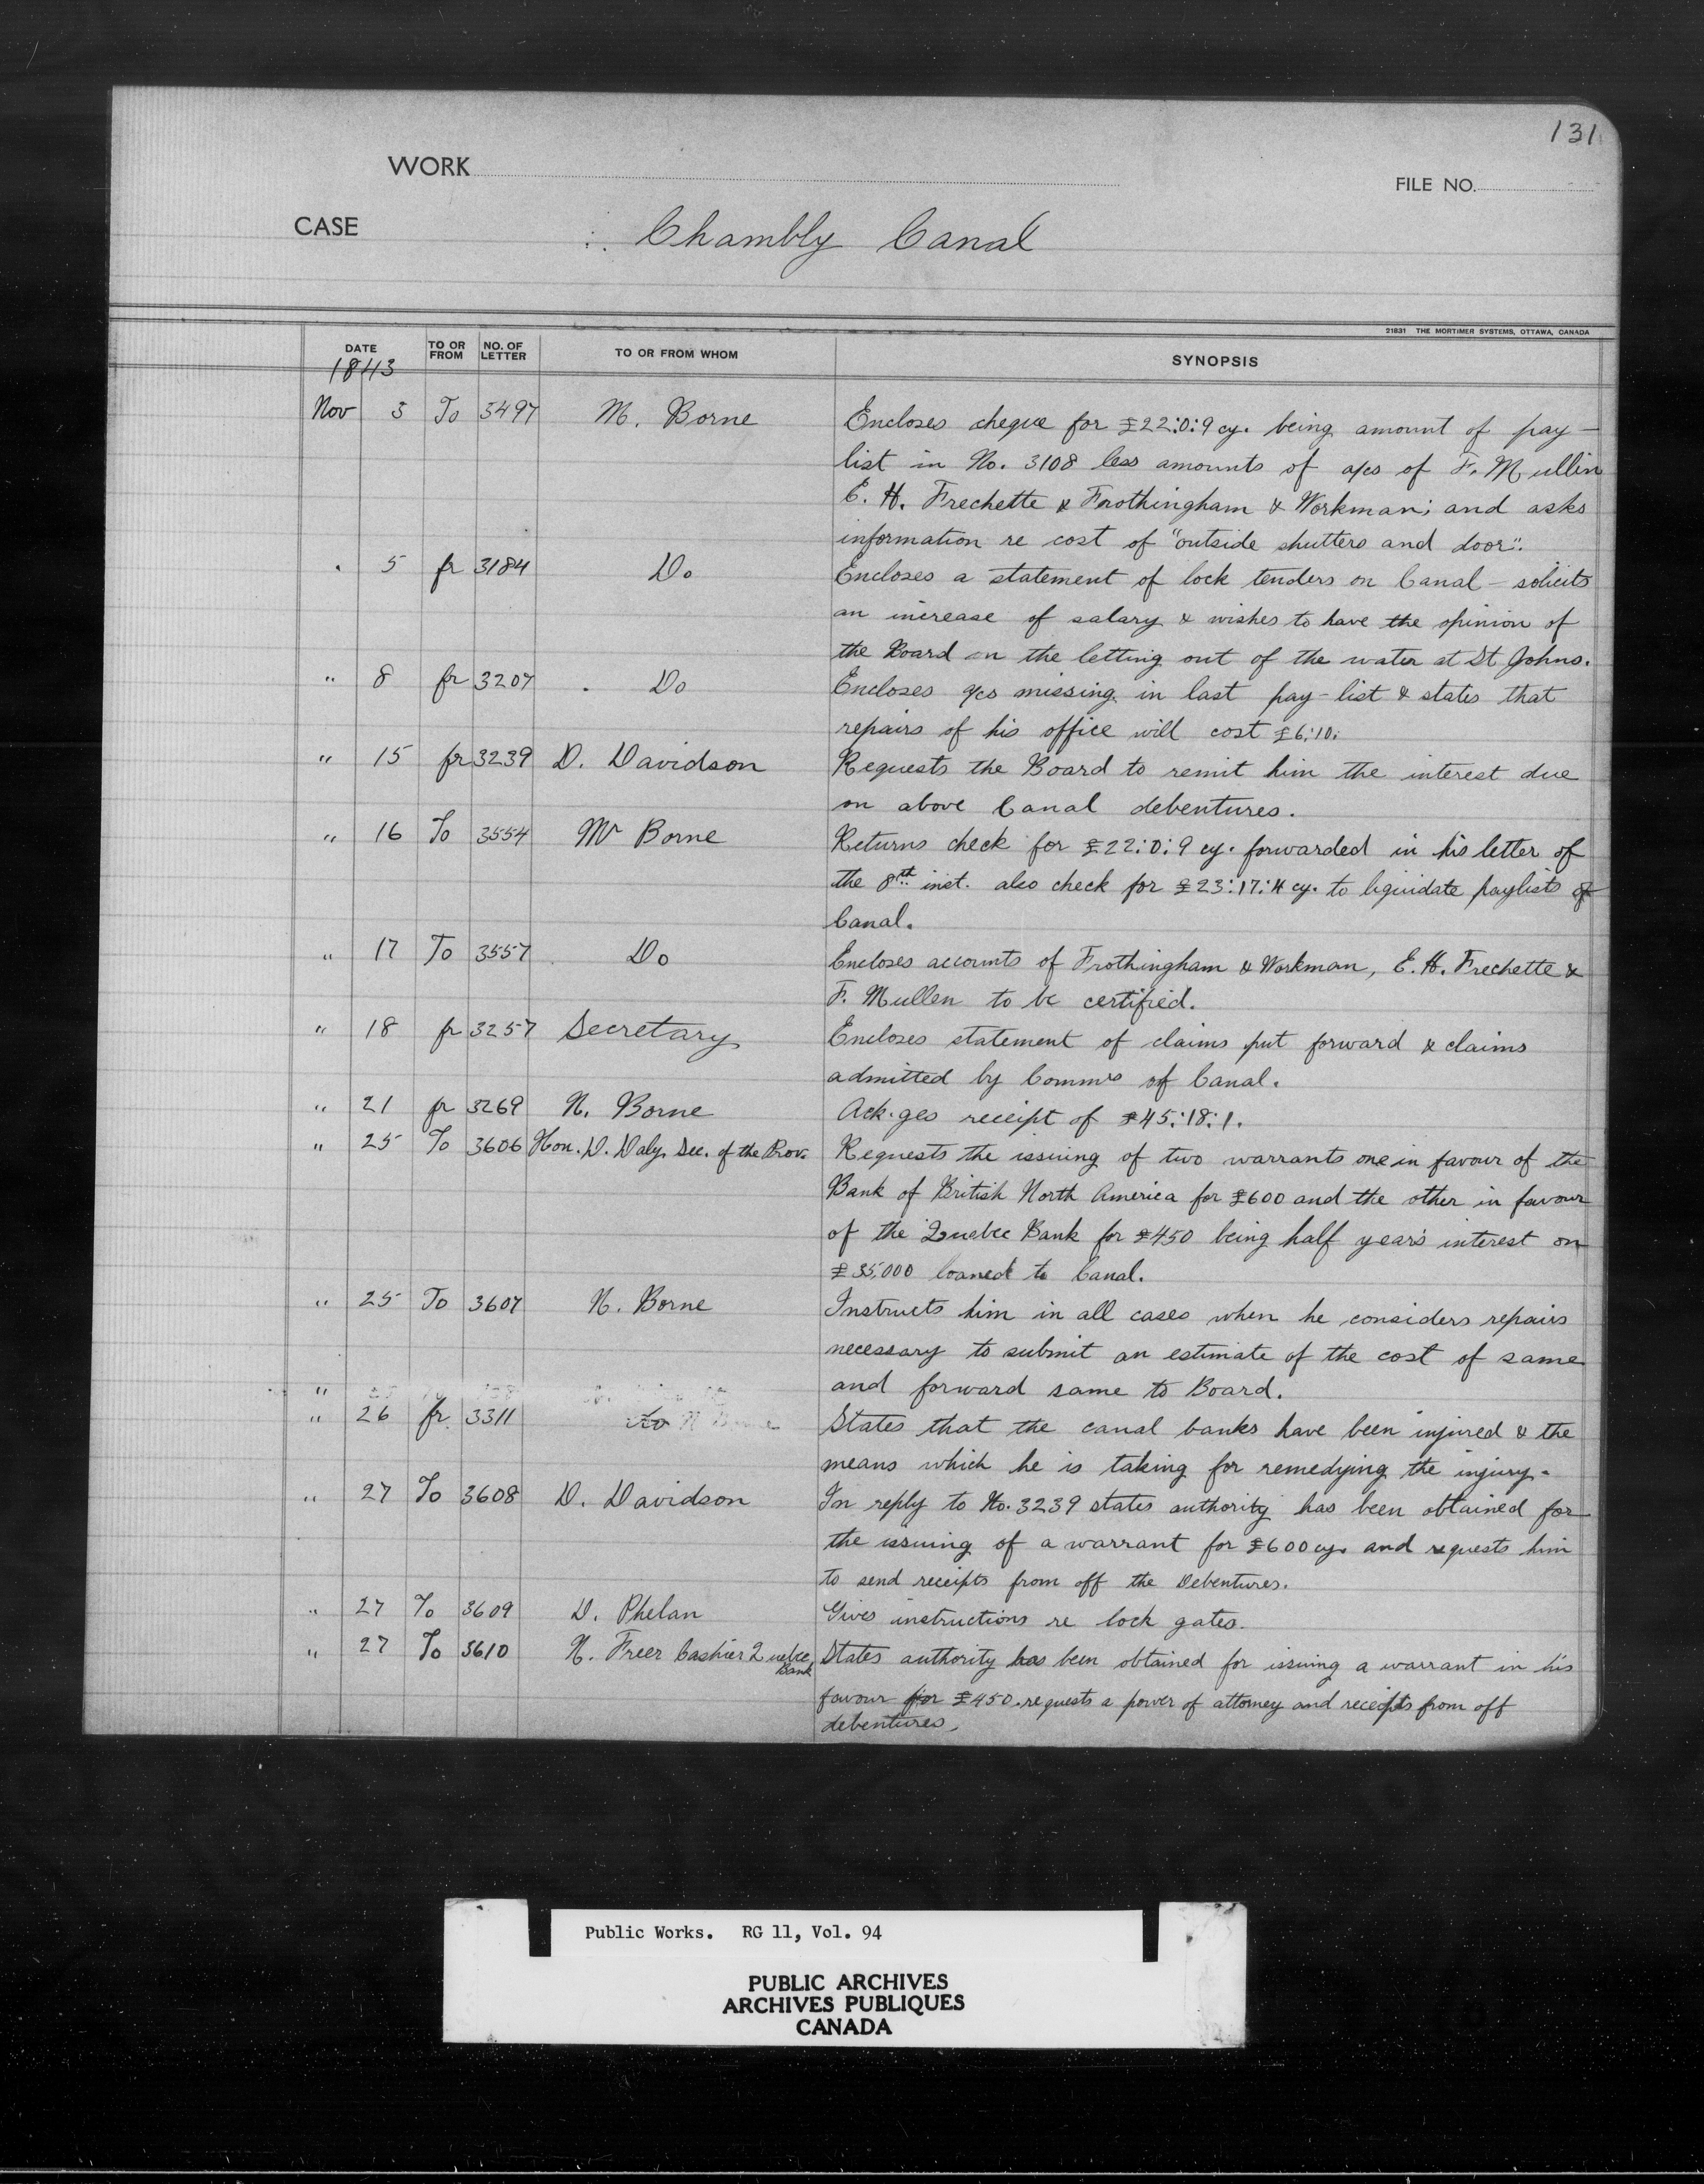 131
WORK
FILE NO.
CASE
Chambly Canal
21831 THE MORTIMER SYSTEMS, OTTAWA, CANADA
DATE TO OR FROM NO. OF LETTER TO OR FROM WHOM SYNOPSIS
1843
Nov 3 To 3497 M. Borne Encloses cheque for £22:0:9 cy. being amount of pay-
list in No. 3108 less amounts of a/cs of F. Mullin
E. H. Frechette & Frothingham & Workman; and asks
information re cost of "outside shutters and door".
" 5 fr 3184 Do Encloses a statement of lock tenders on Canal - solicits
an increase of salary & wishes to have the opinion of
the Board on the letting out of the water at St Johns.
" 8 fr 3207 Do Encloses a/cs missing in last pay-list & states that
repairs of his office will cost £6:10:
" 15 fr 3239 D. Davidson Requests the Board to remit him the interest due
on above Canal debentures.
" 16 To 3554 Mr Borne Returns check for £22:0:9 cy. forwarded in his letter of
the 8th inst. also check for £23:17:4 cy. to liquidate paylists of
Canal.
" 17 To 3557 Do Encloses accounts of Frothingham & Workman, E. H. Frechette &
F. Mullen to be certified.
" 18 fr 3257 Secretary Encloses statement of claims put forward & claims
admitted by Commrs of Canal.
" 21 fr 3269 N. Borne Ack.ges receipt of £45:18:1.
" 25 To 3606 Hon. D. Daly. Sec. of the Prov. Requests the issuing of two warrants one in favour of the
Bank of British North America for £600 and the other in favour
of the Quebec Bank for £450 being half year's interest on
£35,000 loaned to Canal.
" 25 To 3607 N. Borne Instructs him in all cases when he considers repairs
necessary to submit an estimate of the cost of same
and forward same to Board.
"
" 26 fr. 3311 Do N Borne States that the canal banks have been injured & the
means which he is taking for remedying the injury.
" 27 To 3608 D. Davidson In reply to No. 3239 states authority has been obtained for
the issuing of a warrant for £600 cy. and requests him
to send receipts from off the Debentures.
" 27 To 3609 D. Phelan Gives instructions re lock gates.
" 27 To 3610 N. Freer Cashier Quebec Bank States authority has been obtained for issuing a warrant in his
favour for £450. requests a power of attorney and receipts from off
debentures.
Public Works. RG 11, Vol. 94
PUBLIC ARCHIVES
ARCHIVES PUBLIQUES
CANADA